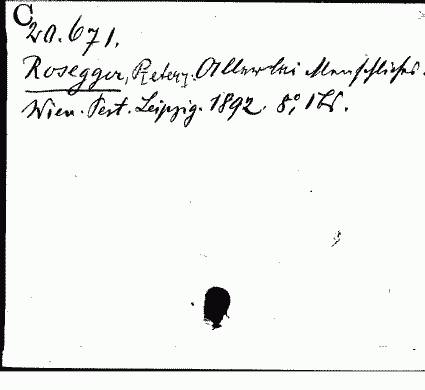 C
20.671.
Rosegger, Peter, Allerlei Menschliches.
Wien. Pest. Leipzig. 1892. 8°, 1 Bd.